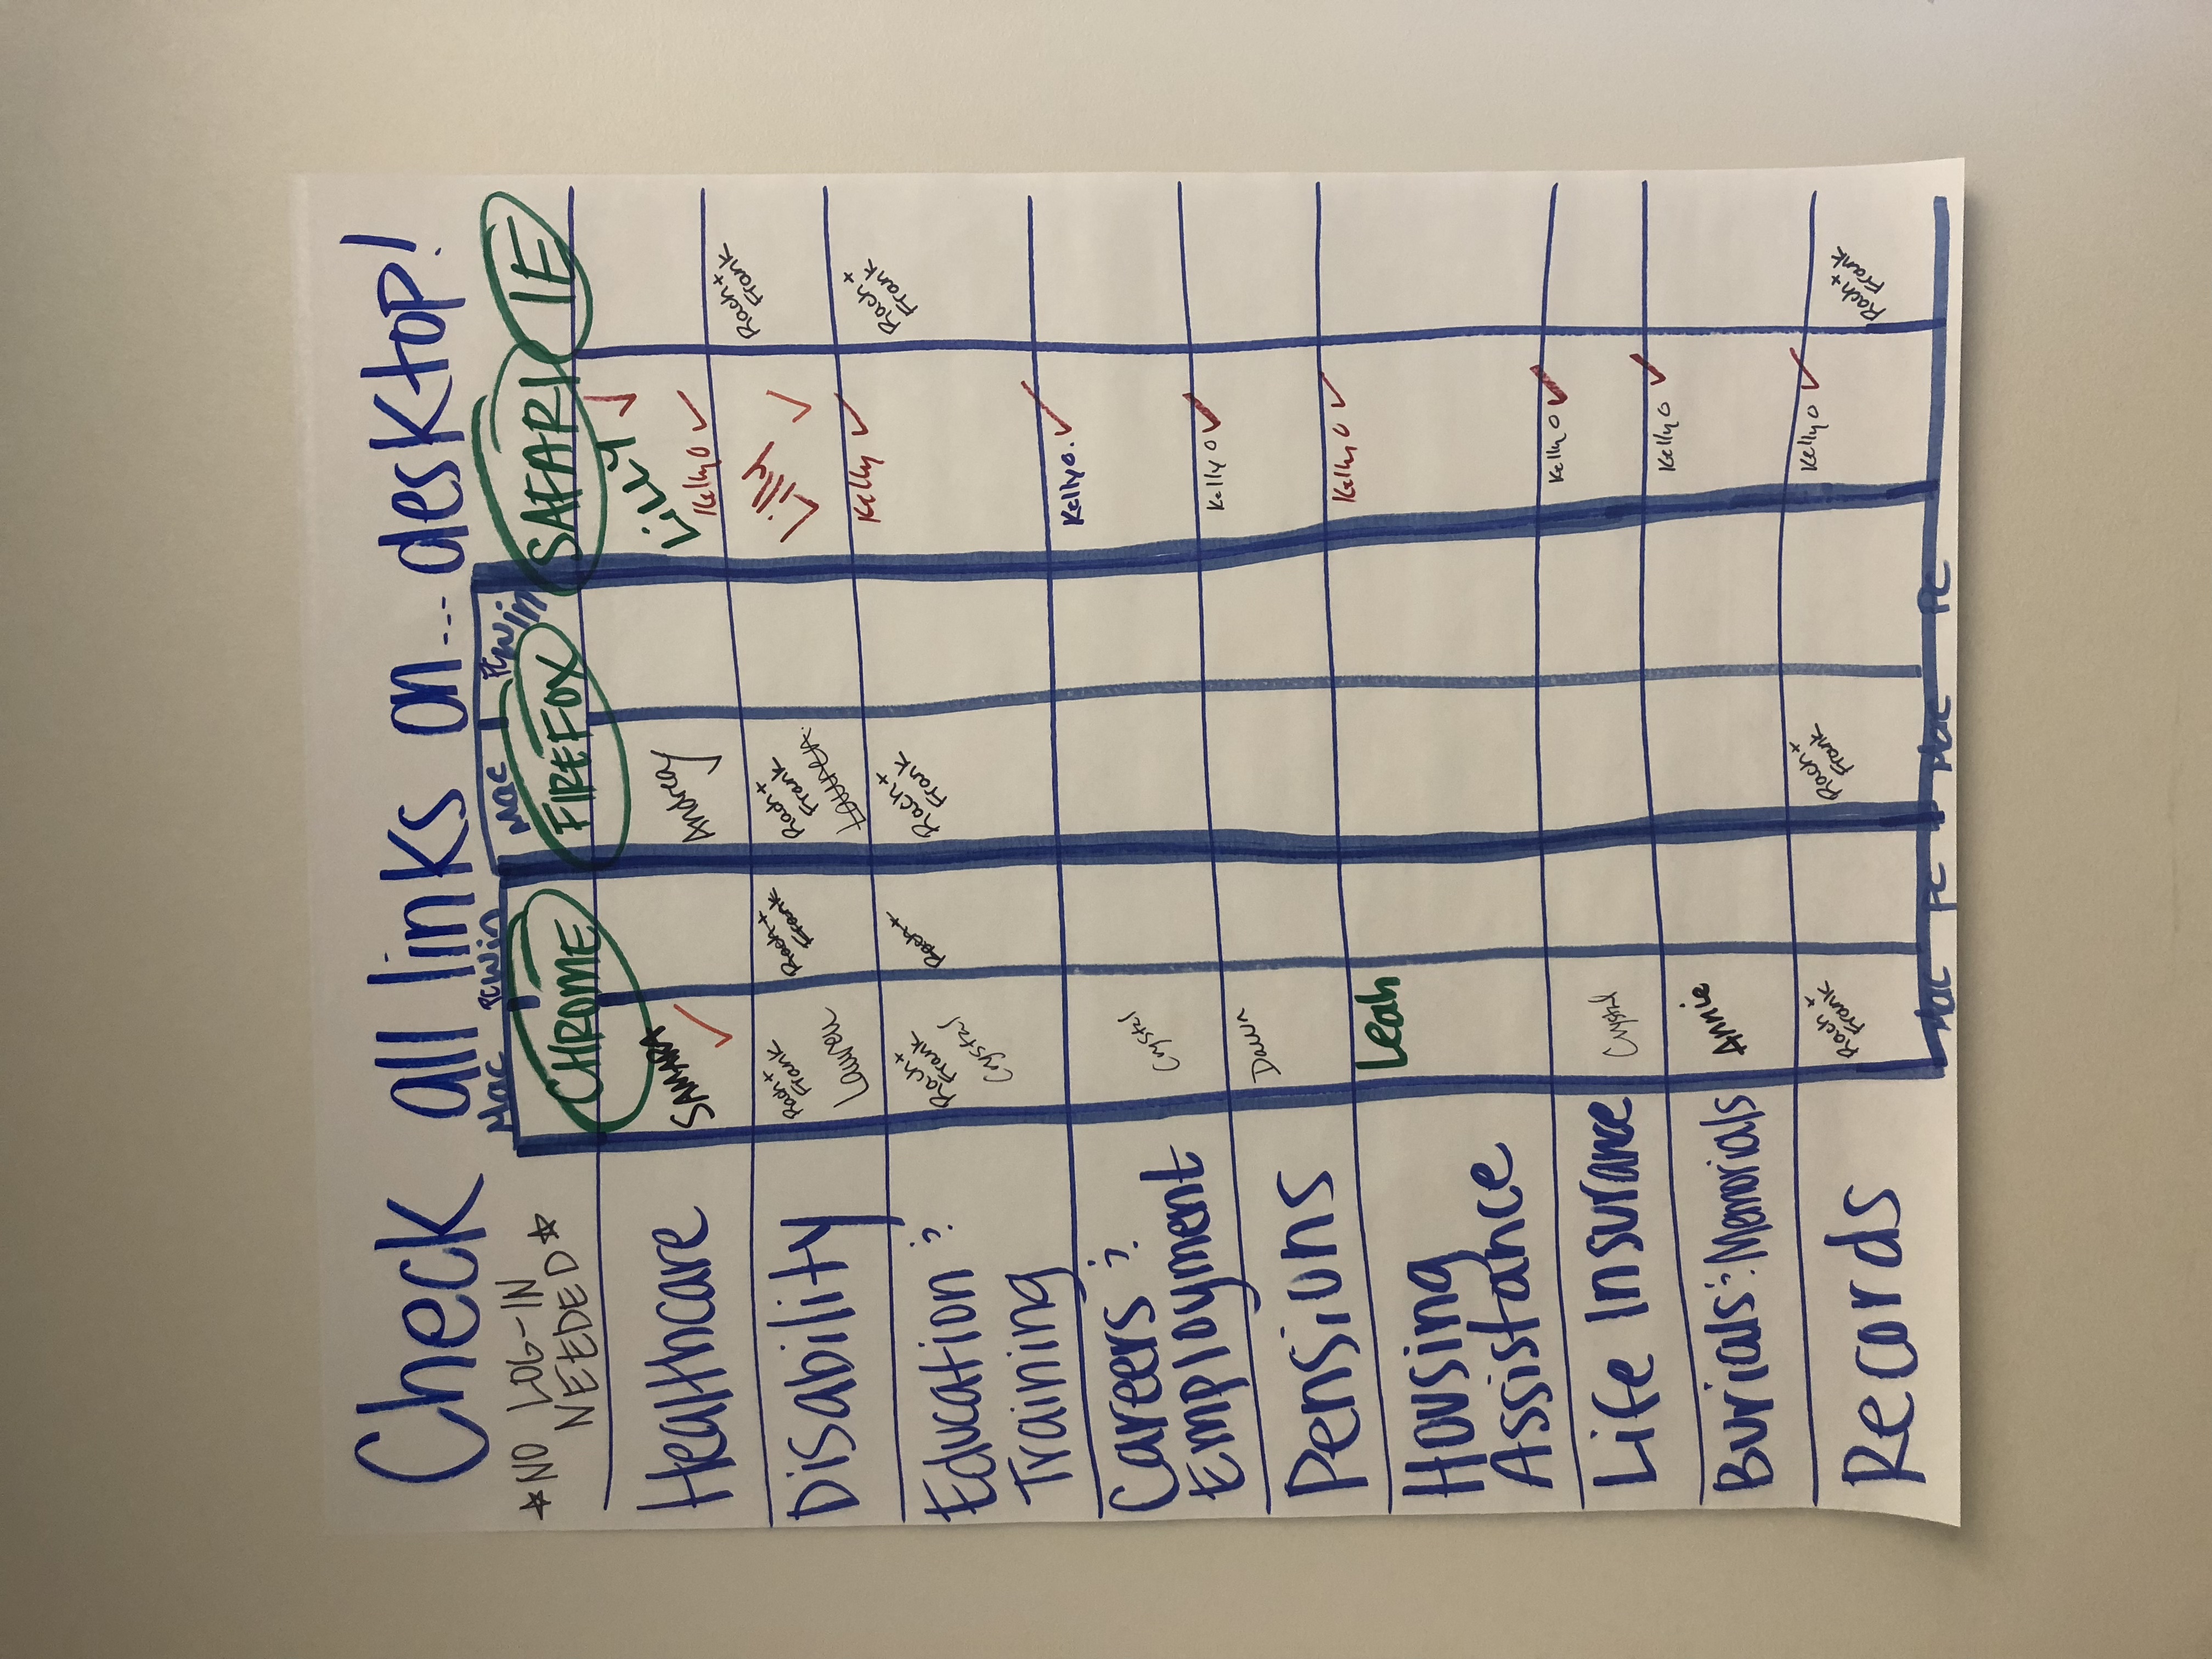 Check all links on... desktop!
Mac PC Win Mac PC Win
*NO LOG-IN
NEEDED*
CHROME FIREFOX SAFARI IE
Healthcare
SAMARA ✓
Andrea ✓
LiLLY ✓
Kelly O ✓
Disability
Rach +
Frank
Lauren
Rach +
Frank
Rach +
Frank
Lauren.
Lilly ✓
Rach +
Frank
Kelly ✓
Education &
Training
Rach +
Frank
Crystal
Rach +
Rach +
Frank
Rach +
Frank
Kelly O. ✓
Careers &
Employment
Crystal
Kelly O ✓
Pensions
Dawn
Kelly O ✓
Housing
Assistance
Leah
Kelly O ✓
Life Insurance
Crystal
Kelly O ✓
Burials & Memorials
Annie
Kelly O ✓
Records
Rach +
Frank
Rach +
Frank
Rach +
Frank
Mac PC Mac PC